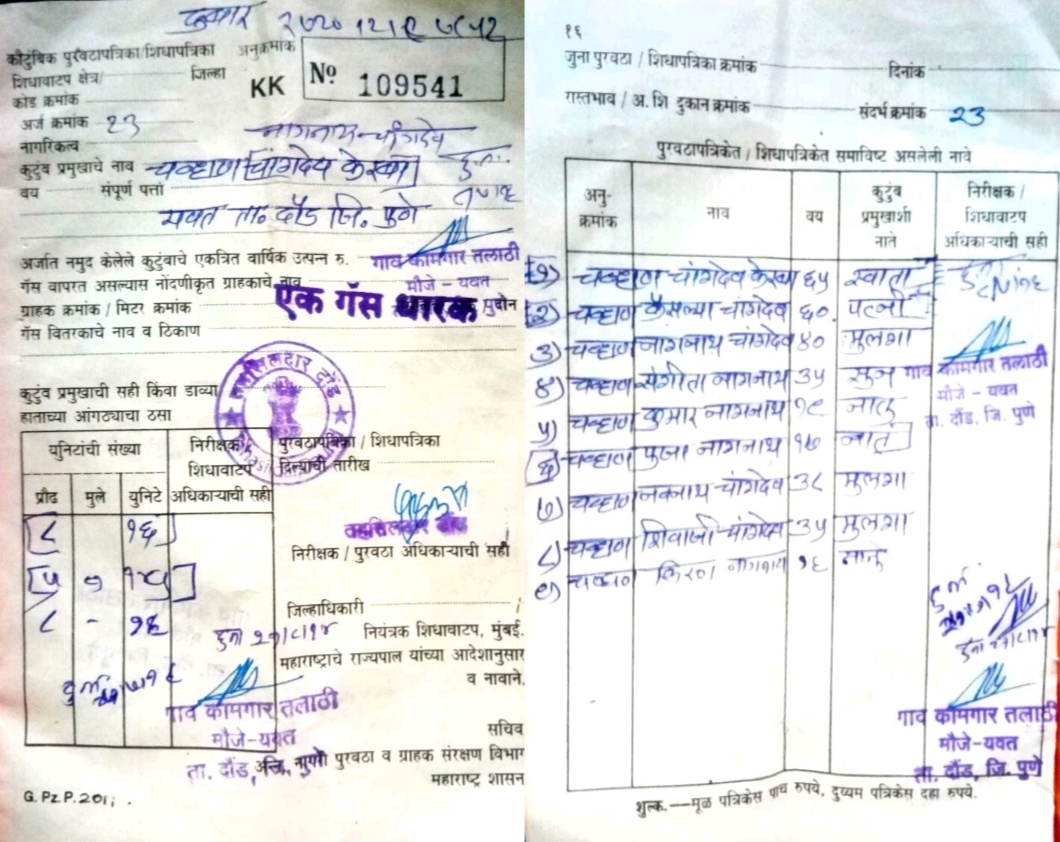 दुबार २०२० १२१९ ७८५२
कौटुंबिक पुरवठापत्रिका/शिधापत्रिका अनुक्रमांक
शिधावाटप क्षेत्र/ जिल्हा
KK Nº 109541
कोड क्रमांक
अर्ज क्रमांक २३
नागरिकत्व
नागनाथ चांगदेव
कुटुंब प्रमुखाचे नाव चव्हाण चांगदेव केरबा
वय संपूर्ण पत्ता
यवत ता. दौंड जि. पुणे
अर्जात नमुद केलेले कुटुंबाचे एकत्रित वार्षिक उत्पन्न रु.
गाव कामगार तलाठी
मौजे - यवत
गॅस वापरत असल्यास नोंदणीकृत ग्राहकाचे नाव
ग्राहक क्रमांक / मिटर क्रमांक
एक गॅस धारक
गॅस वितरकाचे नाव व ठिकाण
तहसिलदार दौंड
कुटुंब प्रमुखाची सही किंवा डाव्या
हाताच्या आंगठ्याचा ठसा
युनिटांची संख्या
निरीक्षक/
शिधावाटप
अधिकाऱ्याची सही
पुरवठापत्रिका / शिधापत्रिका
दिल्याची तारीख
प्रौढ मुले युनिटे
८ १६
५
८ - १६
निरीक्षक / पुरवठा अधिकाऱ्याची सही
जिल्हाधिकारी
नियंत्रक शिधावाटप, मुंबई.
महाराष्ट्राचे राज्यपाल यांच्या आदेशानुसार
व नावाने.
गाव कामगार तलाठी
मौजे-यवत
ता. दौंड,
सचिव
पुरवठा व ग्राहक संरक्षण विभाग
महाराष्ट्र शासन
G. Pz. P. 201
१६
जुना पुरवठा / शिधापत्रिका क्रमांक दिनांक
रास्तभाव / अ. शि दुकान क्रमांक संदर्भ क्रमांक 23
पुरवठापत्रिकेत / शिधापत्रिकेत समाविष्ट असलेली नावे
अनु-
क्रमांक
नाव
वय
कुटुंब
प्रमुखाशी
नाते
निरीक्षक /
शिधावाटप
अधिकाऱ्याची सही
१) चव्हाण चांगदेव केरबा ६५ स्वतः
२) चव्हाण कौसल्या चांगदेव ६०. पत्नी
३) चव्हाण नागनाथ चांगदेव ४० मुलगा
४) चव्हाण संगीता नागनाथ ३५ सुन
गाव कामगार तलाठी
मौजे - यवत
ता. दौंड, जि. पुणे
५) चव्हाण कुमार नागनाथ १८ नातू
६) चव्हाण पुजा नागनाथ १७ नात
७) चव्हाण नवनाथ चांगदेव ३८ मुलगा
८) चव्हाण शिवाजी चांगदेव ३५ मुलगा
९) चव्हाण किरण नागनाथ १६ नातू
गाव कामगार तलाठी
मौजे-यवत
ता. दौंड, जि. पुणे
शुल्क.—मूळ पत्रिकेस पाच रुपये, दुय्यम पत्रिकेस दहा रुपये.